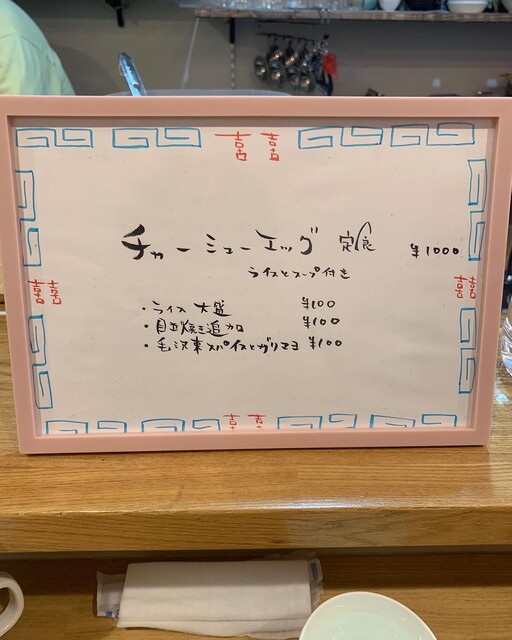 囍 囍
チャーシューエッグ 定食 ¥1000
ライスとスープ付き
囍 囍
・ライス 大盛 ¥100
・目玉焼き追加 ¥100
・毛沢東スパイスとガリマヨ ¥100
囍 囍